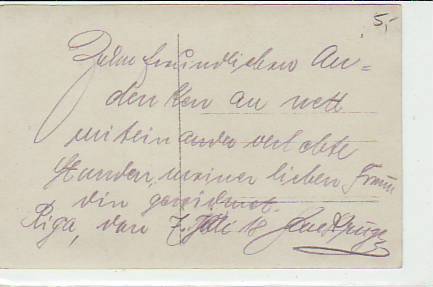 5,-
Zum freundlichen An=
denken an nett
miteinander verlebte
Stunden, meiner lieben Freun
din gewidmet.
Riga, den 7. Juli 18